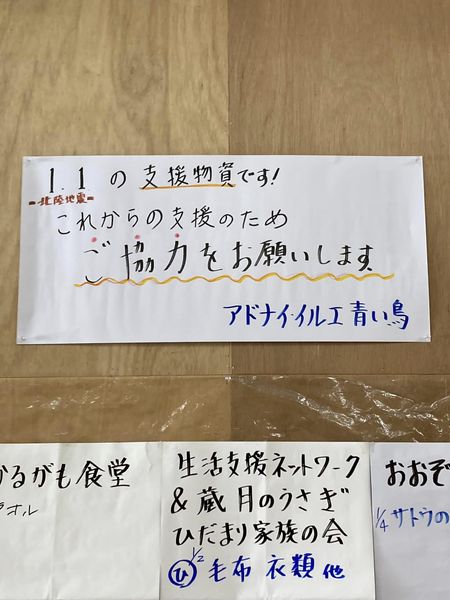 1.1 の支援物資です!
北陸地震
これからの支援のため
ご協力をお願いします
アドナイ・イルエ 青い鳥
るがも食堂
オル
生活支援ネットワーク
& 蔵 月のうさぎ
ひだまり家族の会
1/2
ひ 毛布 衣類 他
おおぞ
1/4 サトウの